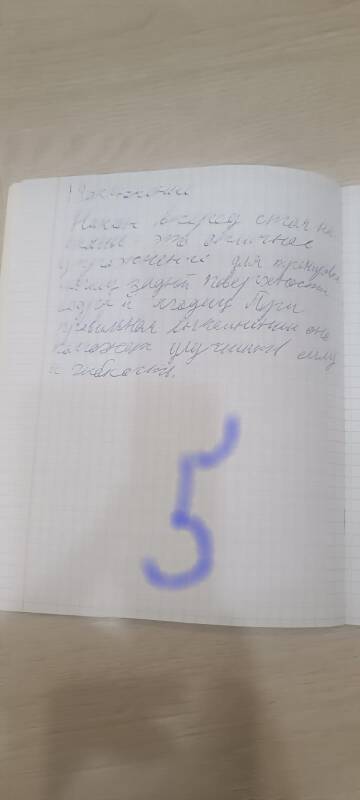 Заключение
Наклон вперед стоя на
это отличное
упражнение для тренировки
мышц задней поверхности
бедра и ягодиц При
правильная выполнении оно
поможет улучшить силу
и гибкость.
5